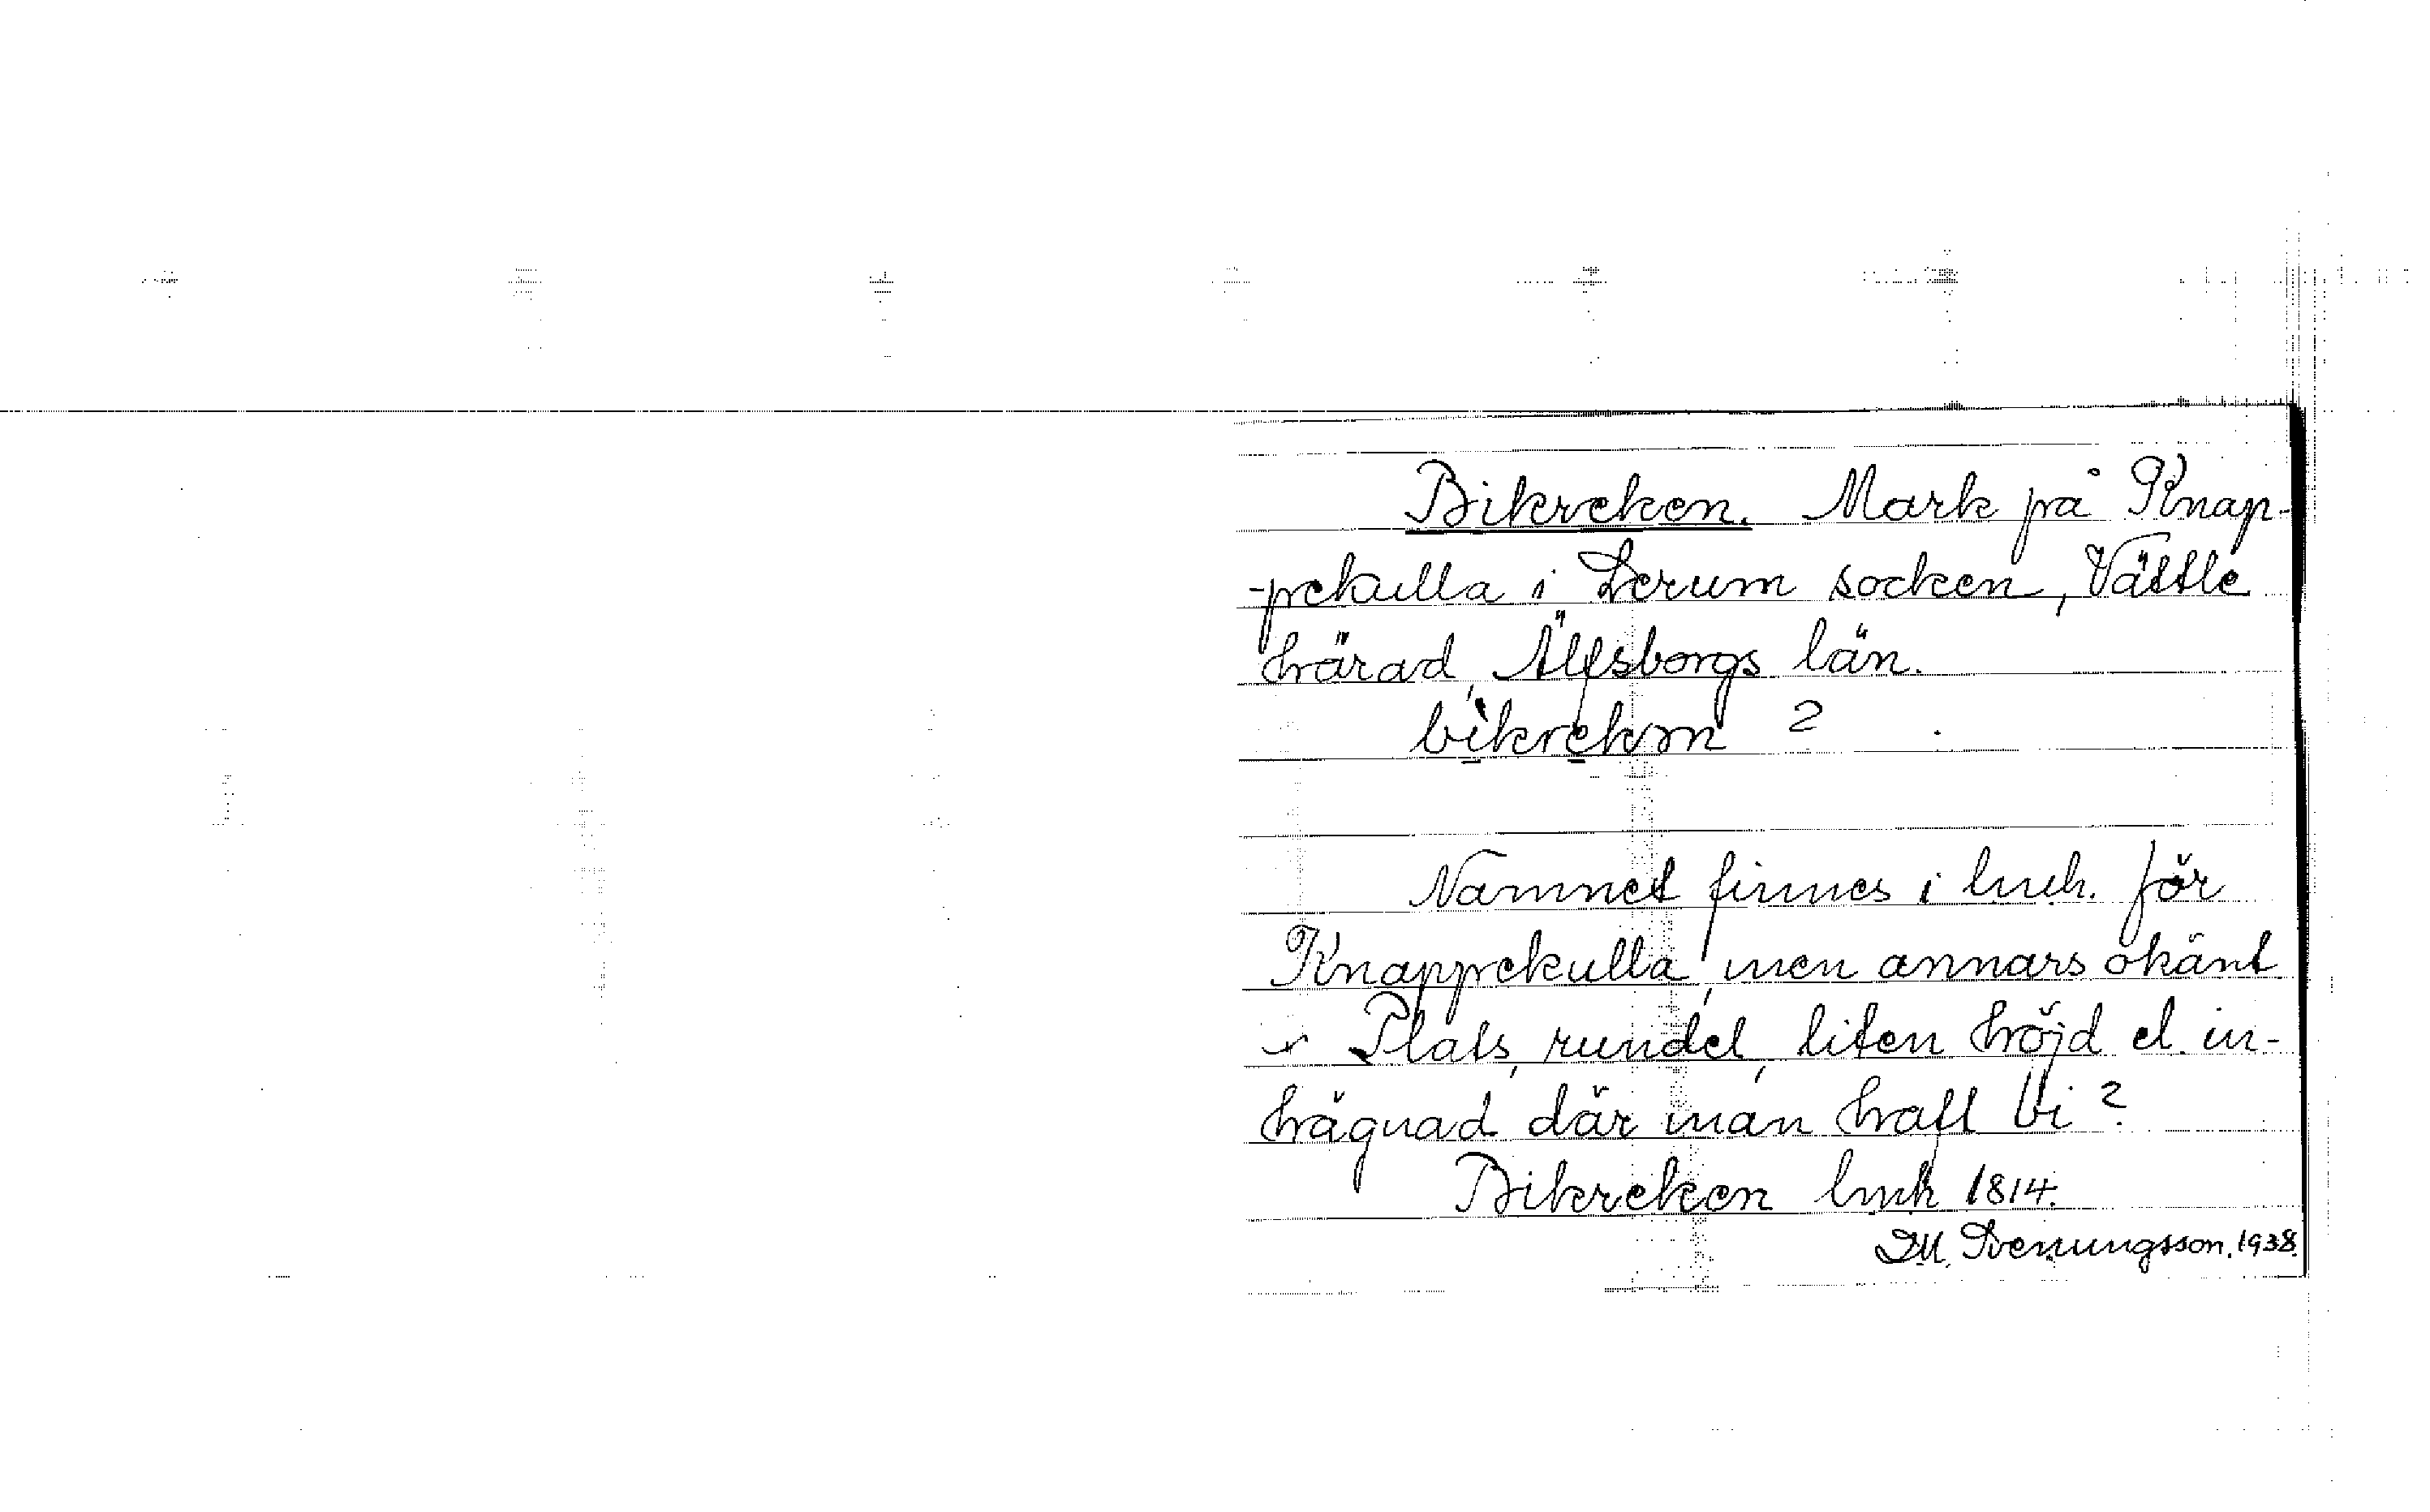 Bikreken. Mark på Knap-
-pekulla i Lerum socken, Vättle
härad, Älfsborgs län.
bikrekøn ?
Namnet finnes i lmh. för
Knappekulla, men annars okänt
Plats, rundel, liten höjd el. in-
hägnad där man haft bi?
Bikreken lmh 1814.
M. Svenungsson. 1938.